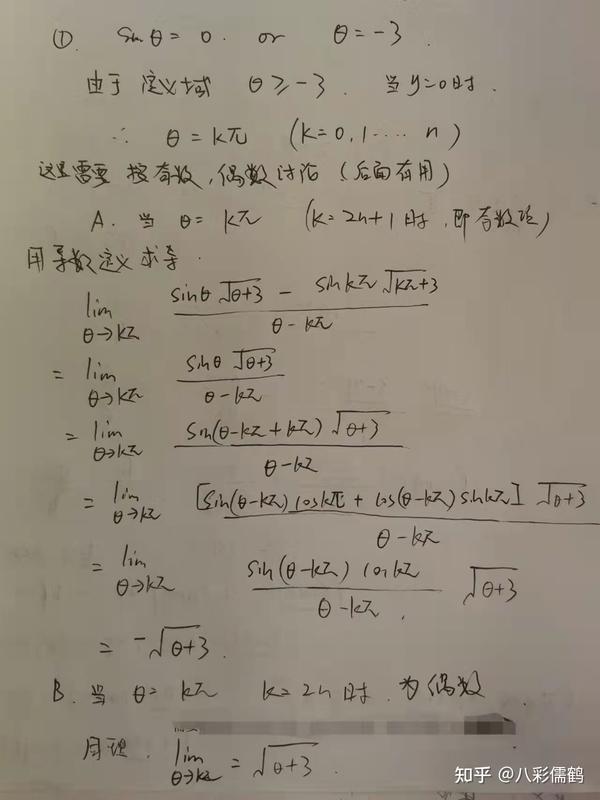 ①. sinθ = 0. or θ = -3.
由于 定义域 θ ≥ -3. 当y=0时.
∴ θ = kπ (k=0,1····n)
这里需要 按奇数,偶数讨论 (后面有用)
A. 当 θ = kπ (k=2n+1时,即奇数项)
用导数定义求导.
lim θ→kπ (sinθ √(θ+3) - sinkπ √(kπ+3)) / (θ-kπ)
= lim θ→kπ (sinθ √(θ+3)) / (θ-kπ)
= lim θ→kπ (sin(θ-kπ+kπ) √(θ+3)) / (θ-kπ)
= lim θ→kπ ([sin(θ-kπ)coskπ + cos(θ-kπ)sinkπ] √(θ+3)) / (θ-kπ)
= lim θ→kπ (sin(θ-kπ) coskπ) / (θ-kπ) √(θ+3)
= -√(θ+3).
B. 当 θ = kπ k=2n时. 为偶数
同理. lim θ→kπ = √(θ+3).
知乎 @八彩儒鹤